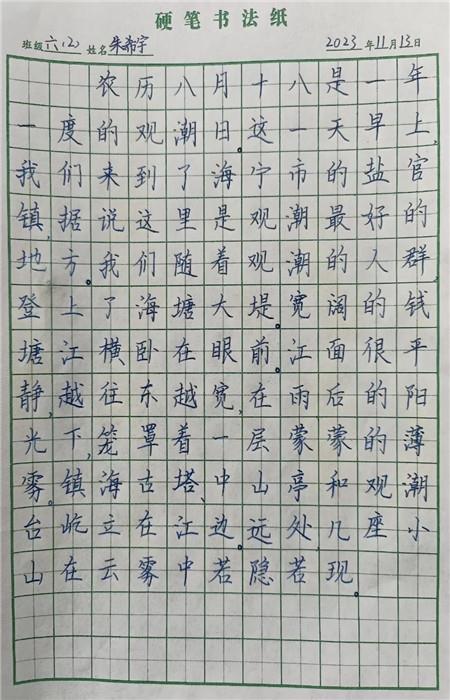 硬笔书法纸
班级六(2) 姓名朱希宇 2023年11月13日
农历八月十八是一年
一度的观潮日。这一天早上,
我们来到了海宁市的盐官
镇,据说这里是观潮最好的
地方。我们随着观潮的人群,
登上了海塘大堤。宽阔的钱
塘江横卧在眼前。江面很平
静,越往东越宽,在雨后的阳
光下,笼罩着一层蒙蒙的薄
雾。镇海古塔、中山亭和观潮
台屹立在江边。远处,几座小
山在云雾中若隐若现。